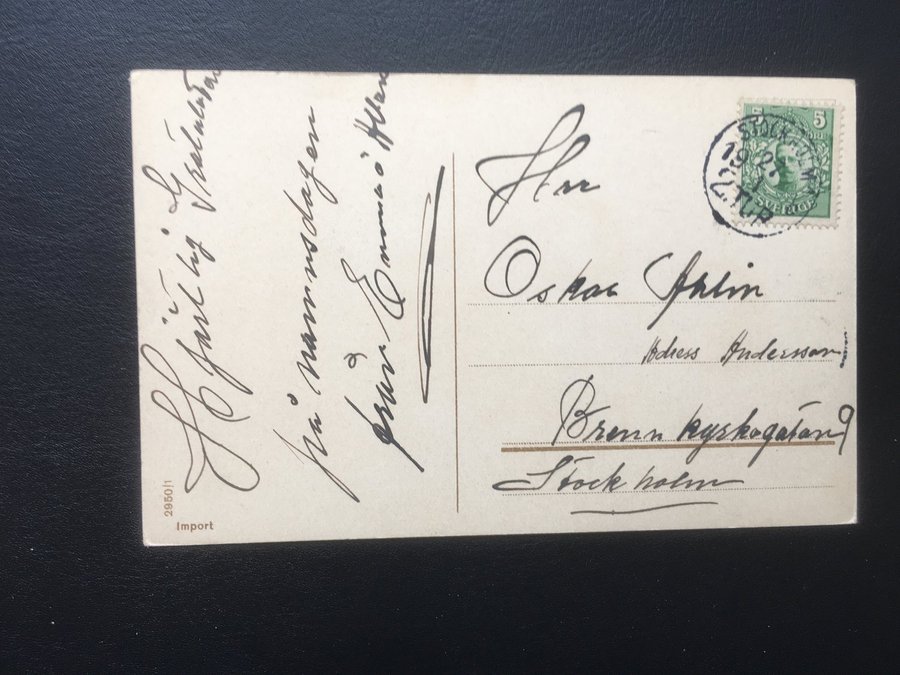 Hjärtlig Gratulation
på namnsdagen
från Emma o Allan
Herr
Oskar Ahlin
Adress Andersson
Brennkyrkogatan 9
Stockholm
5
SVERIGE
STOCKHOLM
2.TUR
2950/1
Import